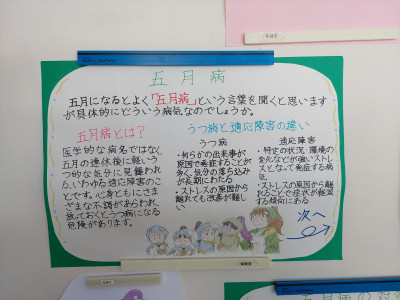 五月病
五月になるとよく「五月病」という言葉を聞くと思います
が具体的にどういう病気なのでしょうか。
五月病とは?
医学的な病名ではなく、
五月の連休後に軽いう
つ的な気分に見舞われ
る、いわゆる適応障害のこ
とです。心身ともにさま
ざまな不調があらわれ、
放っておくとうつ病になる
危険があります。
うつ病と適応障害の違い
うつ病
・何らかの出来事が
原因で発症することが
多く、気分の落ち込み
が長期にわたる
・ストレスの原因から
離れても改善が難し
い
適応障害
・特定の状況・環境の
変化などが強いストレ
スとなって発症する病
気
・ストレスの原因から離
れることで症状が軽快
する傾向にある
次へ
五月病の対